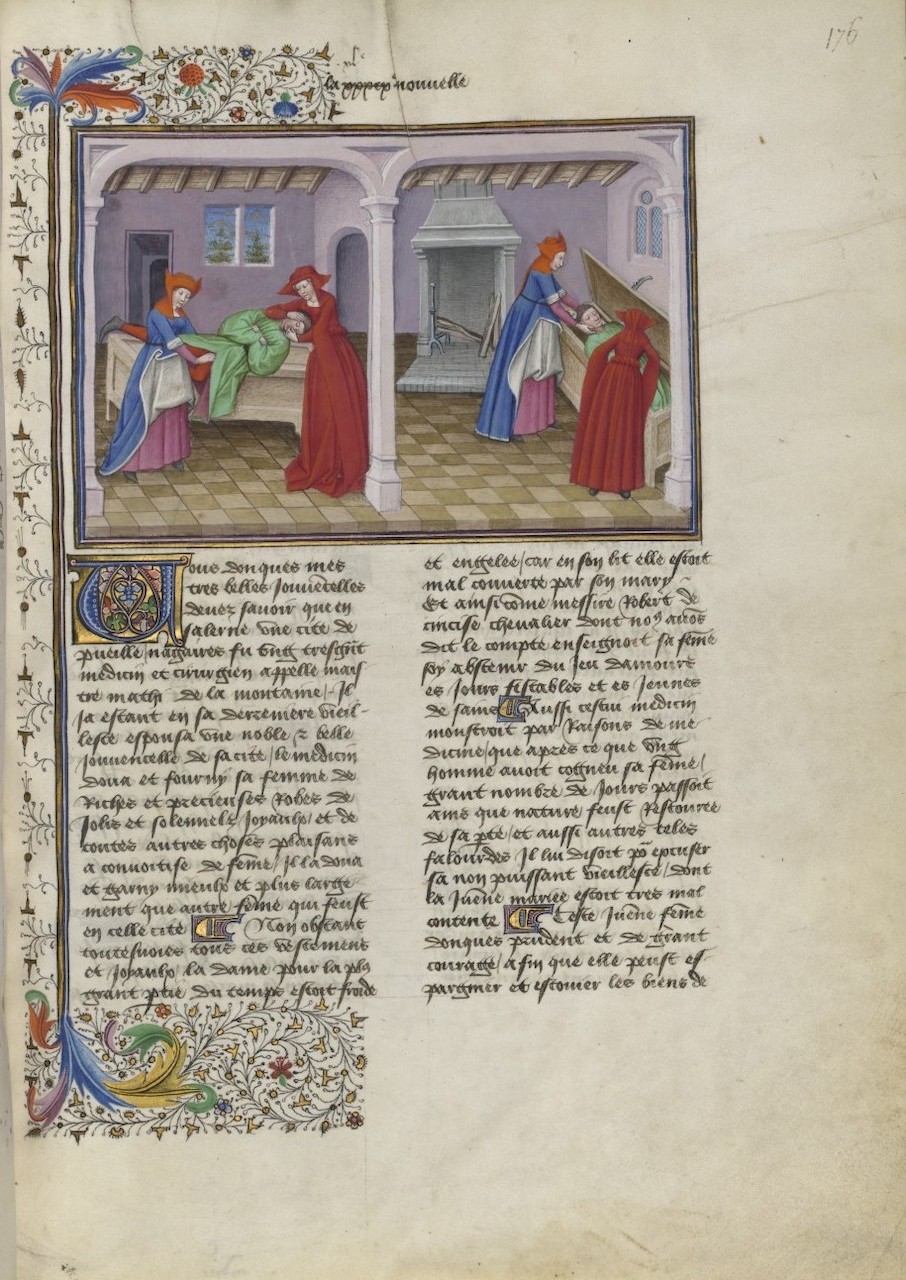 176
.xl.e
la xxxxe nouuelle
Uous donques mes
tres belles Jouuēcelles
deuez sauoir que en
salerne vne cite de
pueille nagaires fu vng tresgñt
medicin et cirurgien appelle mais
tre math de la montaine Il
ja estant en sa derreniere vieil-
lesce espousa vne noble z belle
jouuencelle de sa cite le medicin
dona et fourny sa femme de
Riches et precieuses Robes de
Jolis et solennels Joyaulx et de
toutes autres choses plaisans
a conuoitise de feme Il la dona
et garny mieulx et plus large
ment que autre feme qui feust
en celle cite Non obstant
toutesuoies tous ces vestemens
et Joyaulx la dame pour la pls
grant ptie du temps estoit froide
et engelee car en son lit elle estoit
mal couuerte par son mary
Et ainsi cōme messire Robert de
cincise cheualier dont noꝰ auōs
dit le compte enseignoit sa fēme
soy abstenir du Jeu damours
es Jours festables et es Jeunes
de sains Aussi cestui medicin
monstroit par Raisons de me
dicine que apres ce que vng
homme auoit cogneu sa fēme
grant nombre de Jours passoit
ains que nature feust Restouree
de sa pte et aussi autres teles
falourdes Il lui disoit po' excuser
sa non puissant vieillesce dont
la Juēne mariee estoit tres mal
contente Ceste Juēne feme
donques prudent et de grant
courage afin que elle peust es
pargnier et estouier les biens de